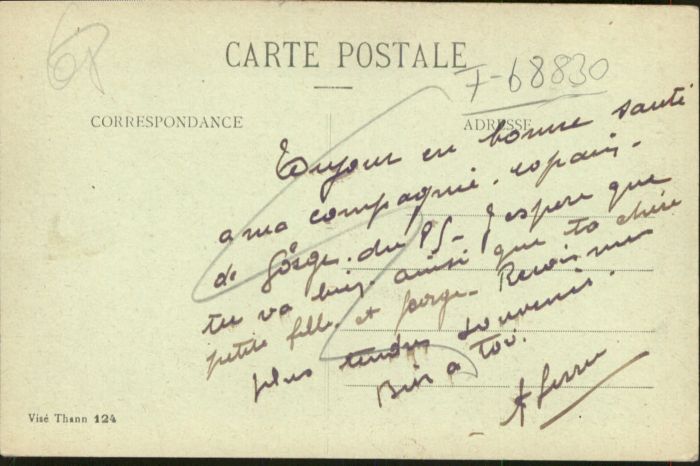 68
CARTE POSTALE
7-68830
CORRESPONDANCE
ADRESSE
Toujour en bonne santé
a ma compagnie. copain.
de du PS. J'espere que
tu va bien ainsi que ta chère
petite fille et Recois mes
plus tendres souvenirs.
Bien a Toi.
Visé Thann 124